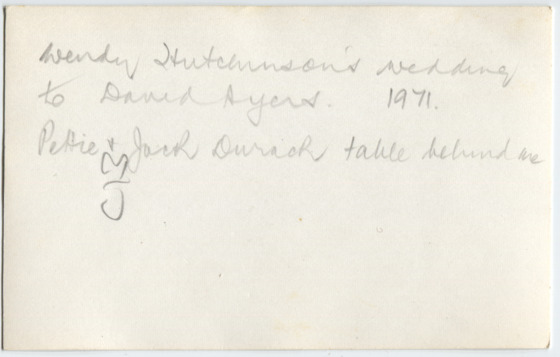 Wendy Hutchinson's wedding
to David Ayers. 1971.
Pettie & Jack Durack table behind me